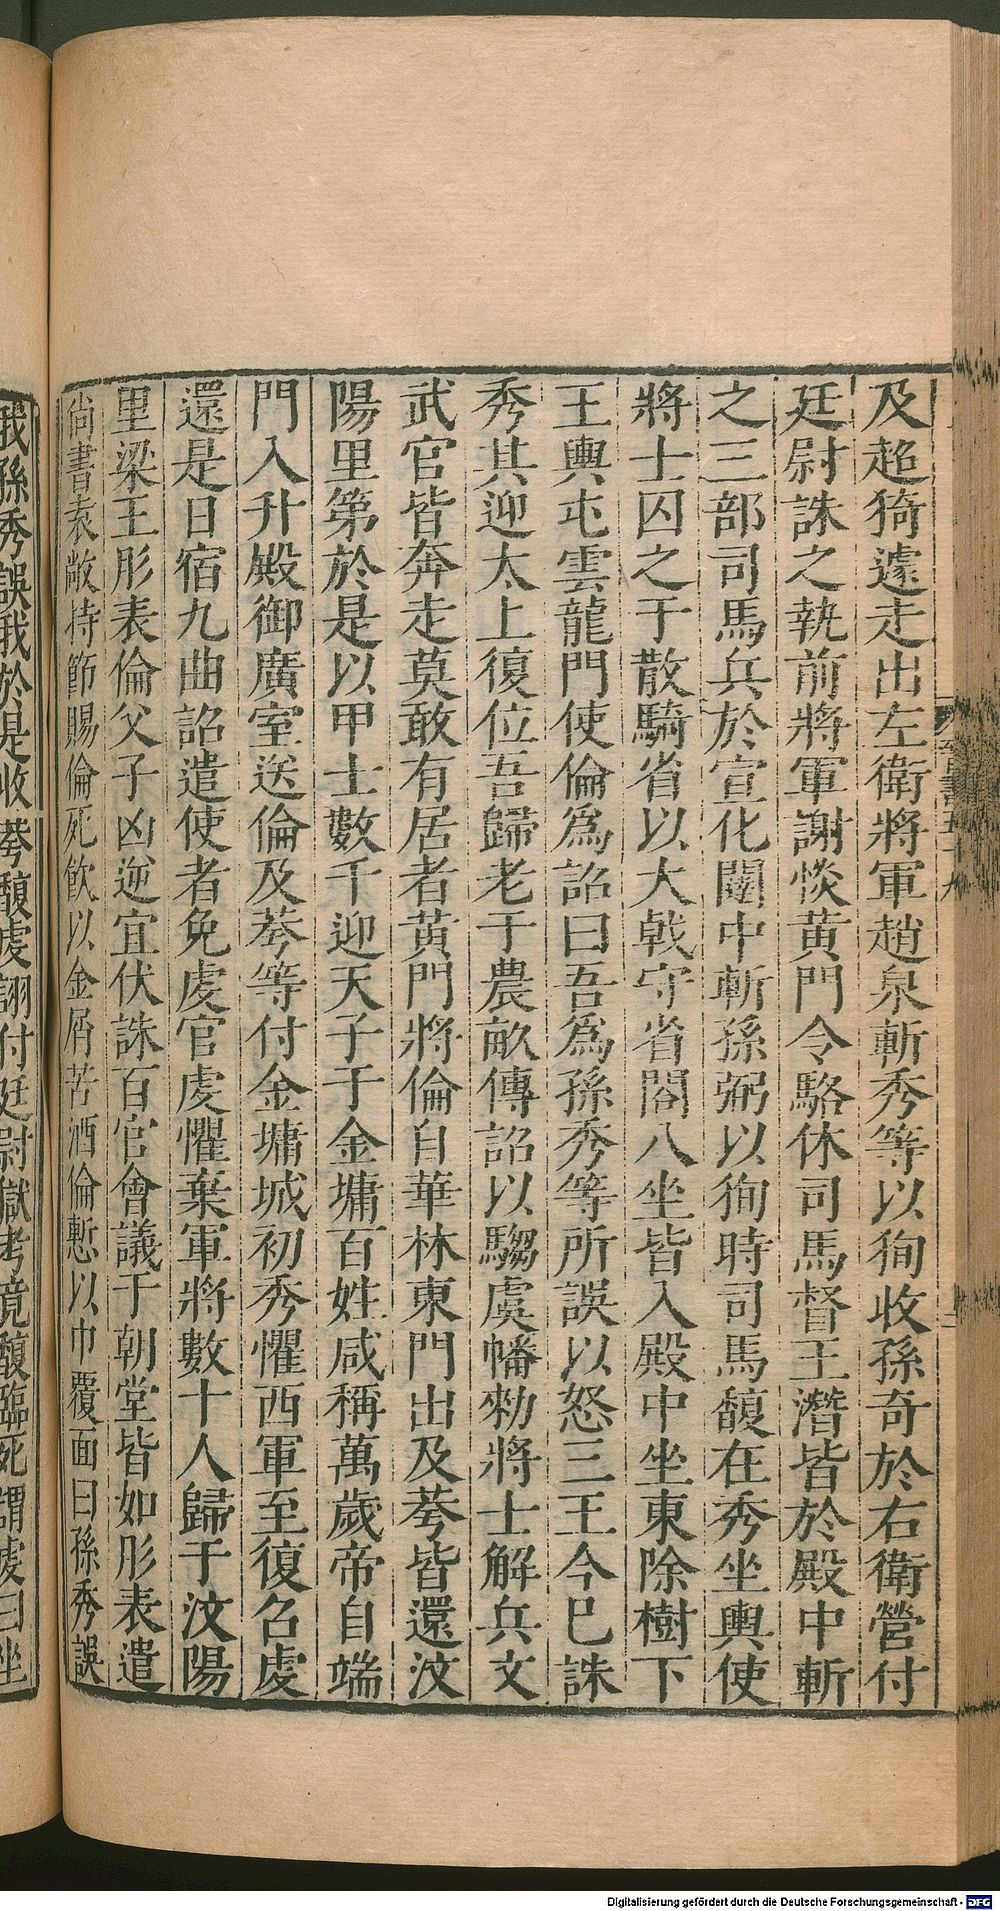 及超猗遽走出左衛將軍趙泉斬秀等以狥收孫奇於右衛營付
廷尉誅之執前將軍謝惔黃門令駱休司馬督王潛皆於殿中斬
之三部司馬兵於宣化闥中斬孫弼以狥時司馬馥在秀坐輿使
將士囚之于散騎省以大戟守省閤八坐皆入殿中坐東除樹下
王輿屯雲龍門使倫爲詔曰吾爲孫秀等所誤以怒三王今巳誅
秀其迎太上復位吾歸老于農畝傳詔以騶虞幡勑將士解兵文
武官皆奔走莫敢有居者黃門將倫自華林東門出及荂皆還汶
陽里第於是以甲士數千迎天子于金墉百姓咸稱萬歲帝自端
門入升殿御廣室送倫及荂等付金墉城初秀懼西軍至復召虔
還是日宿九曲詔遣使者免虔官虔懼棄軍將數十人歸于汶陽
里梁王肜表倫父子凶逆宜伏誅百官會議于朝堂皆如肜表遣
尚書袁敞持節賜倫死飲以金屑苦酒倫慙以巾覆面曰孫秀誤
我孫秀誤我於是收荂馥虔詡付廷尉獄考竟馥臨死謂虔曰坐
Digitalisierung gefördert durch die Deutsche Forschungsgemeinschaft - DFG